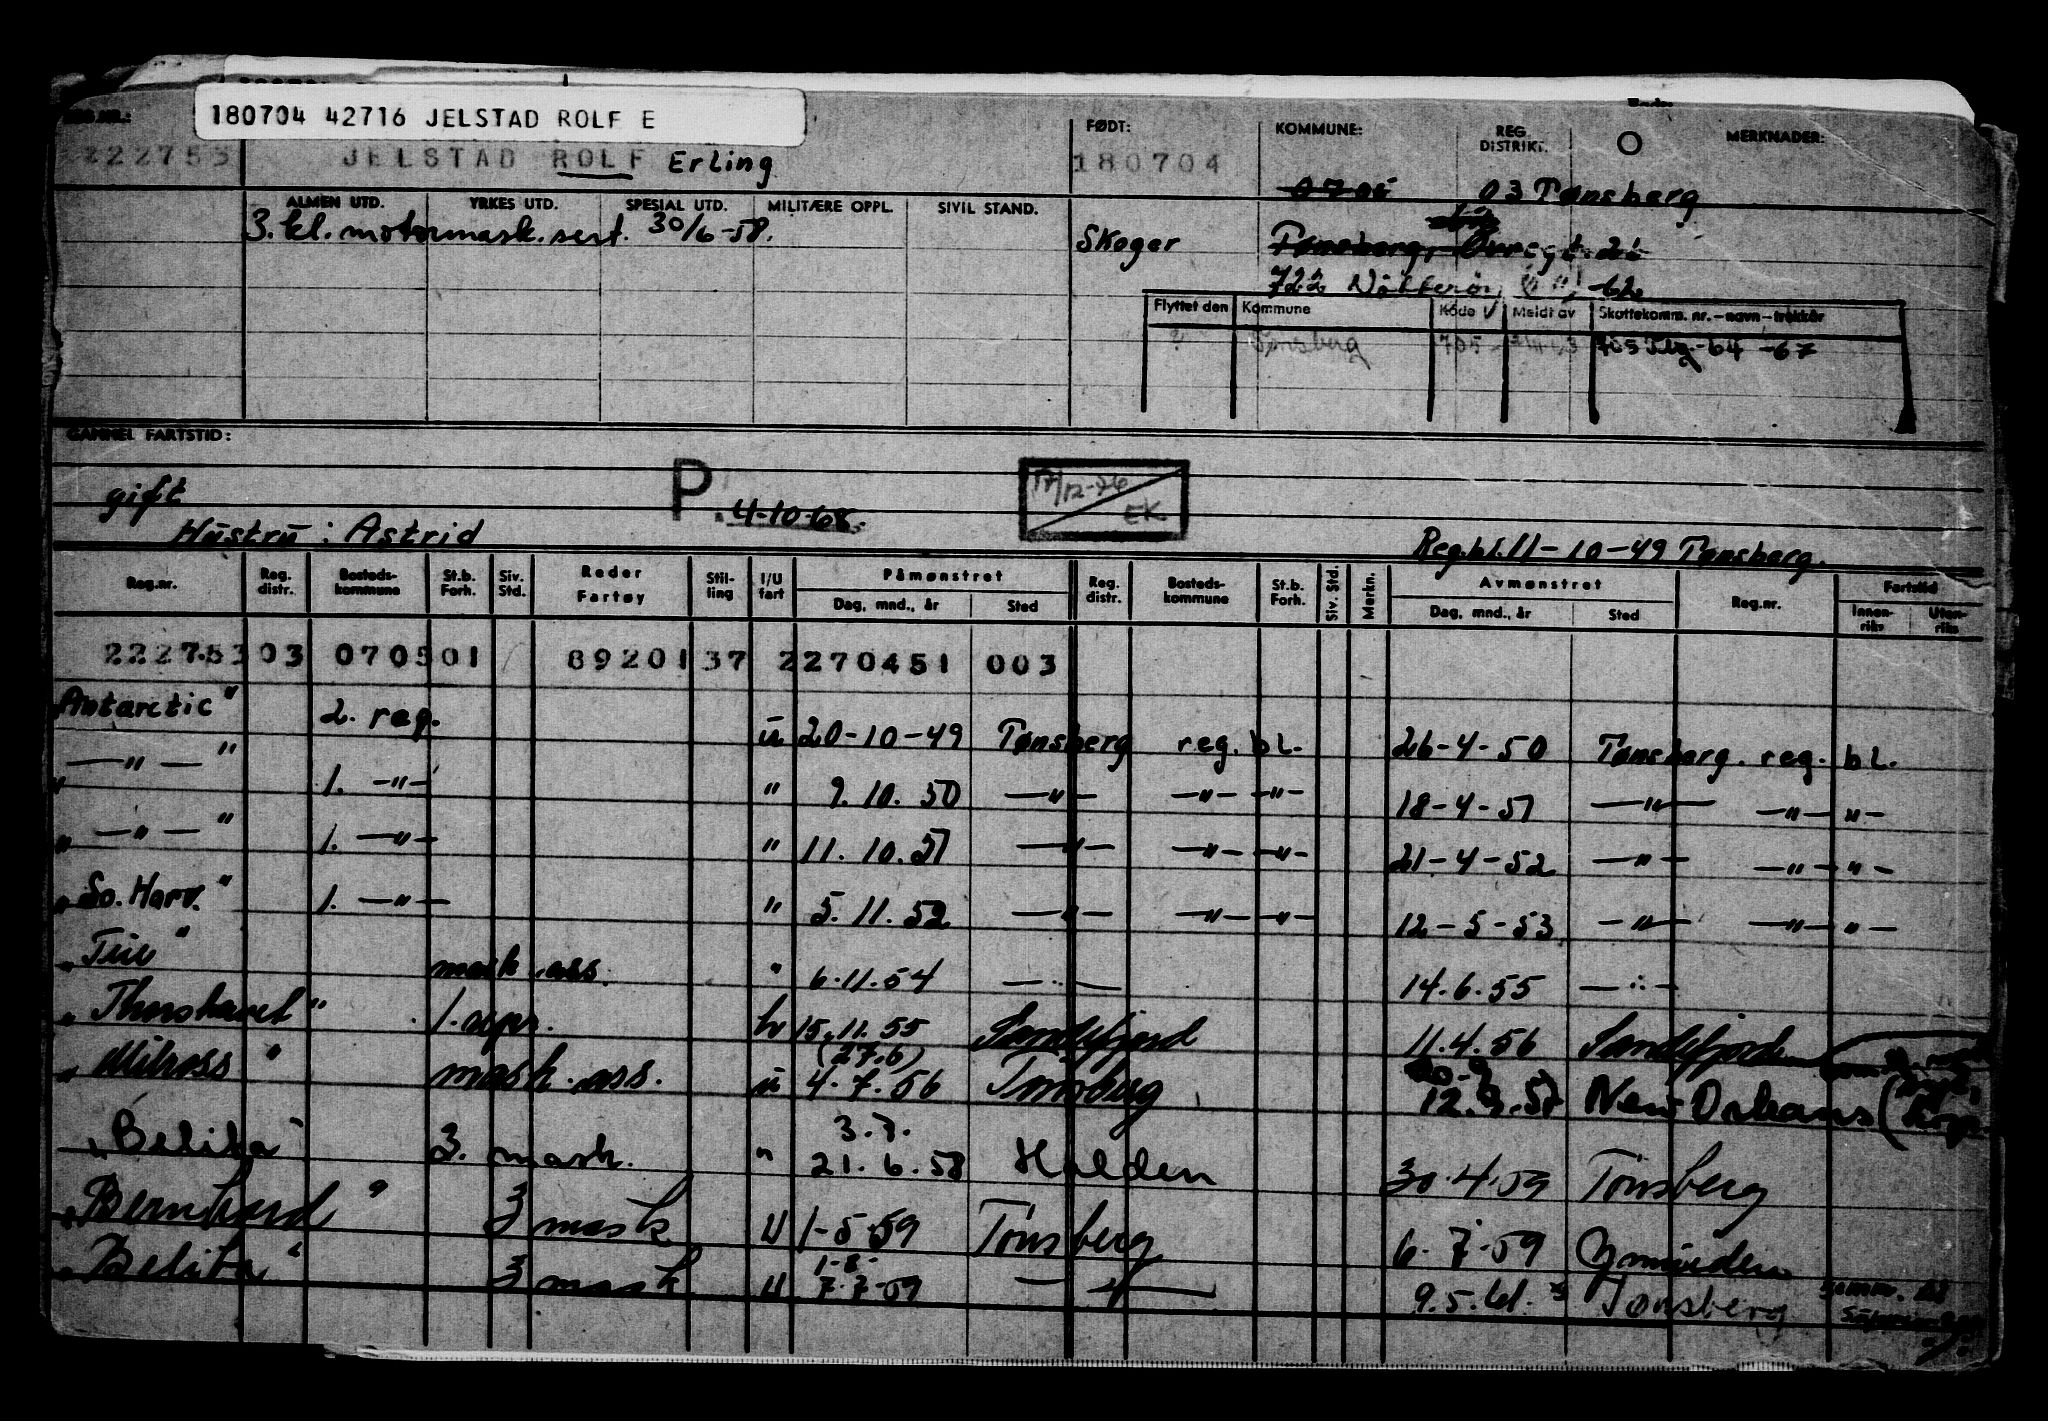 180704 42716 JELSTAD ROLF E
222753 JELSTAD ROLF Erling FØDT: 180704 KOMMUNE: REG. DISTRIKT. MERKNADER:
0705 03 Tønsberg
ALMEN UTD. YRKES UTD. SPESIAL UTD. MILITÆRE OPPL. SIVIL STAND.
3. kl. motormask.sert. 30/6-58. Skoger Tønsberg,
722 Nøtterøy, -62
Flyttet den Kommune Kode Meldt av Skattekomm. nr. — navn — trekkår
? Tønsberg 705 705 Tbg. -64 -67
GAMMEL FARTSTID:
gift P. 4-10-68. 17/12-76 EK
Hustru : Astrid Reg.bl. 11-10-49 Tønsberg.
Reg.nr. Reg. distr. Bosteds- kommune St.b. Forh. Siv. Std. Reder Fartøy Stil- ling I/U fart Påmønstret Dag, mnd., år Sted Reg. distr. Bosteds- kommune St.b. Forh. Siv. Std. Merkn. Avmønstret Dag, mnd., år Sted Reg.nr. Fartstid Innen- riks Uten- riks
222753 03 0705 01 89201 37 2 270451 003
Antarctic" 2. rep. u 20-10-49 Tønsberg reg. bl. 26-4-50 Tønsberg. reg. bl.
" —"—" 1. —"— " 9. 10. 50 —"— —"— —"— 18-4-51 —"— —"— "—
" —"—" 1. —"— " 11. 10. 51 —"— —"— —"— 21-4-52 —"— —"— "—
" So. Harv." 1. —"— " 5. 11. 52 —"— —"— —"— 12-5-53 —"— —"— "—
" " mask. ass. " 6.11.54 —"— 14.6.55 —"—
" Thorshavet" 1. repr. 15.11.55 Sandefjord 11.4.56 Sandefjord
(27.6)
" Milross " mask. ass. u 4.7.56 Tønsberg 12.9. New Orleans
3.7.
"Belita" 3. mask. " 21.6.58 Halden 30.4.59 Tønsberg
"Bernhard" 3 mask U 1-5-59 Tønsberg 6.7.59
1-8-
"Belita" 3 mask U 7.7.59 —"— 9.5.61. Tønsberg